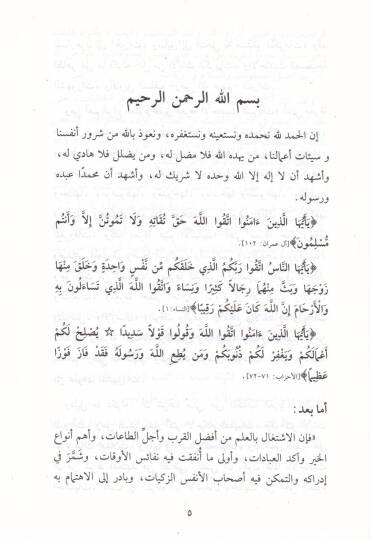 بسم الله الرحمن الرحيم
إن الحمد لله نحمده ونستعينه ونستغفره، ونعوذ بالله من شرور أنفسنا
و سيئات أعمالنا، من يهده الله فلا مضل له، ومن يضلل فلا هادي له،
وأشهد أن لا إله إلا الله وحده لا شريك له، وأشهد أن محمدًا عبده
ورسوله.
﴿يَٰٓأَيُّهَا الَّذِينَ ءَامَنُوا اتَّقُوا اللَّهَ حَقَّ تُقَاتِهِ وَلَا تَمُوتُنَّ إِلَّا وَأَنتُم
مُّسْلِمُونَ﴾[آل عمران: ١٠٢].
﴿يَٰٓأَيُّهَا النَّاسُ اتَّقُوا رَبَّكُمُ الَّذِي خَلَقَكُم مِّن نَّفْسٍ وَاحِدَةٍ وَخَلَقَ مِنْهَا
زَوْجَهَا وَبَثَّ مِنْهُمَا رِجَالًا كَثِيرًا وَنِسَاءً وَاتَّقُوا اللَّهَ الَّذِي تَسَاءَلُونَ بِهِ
وَالْأَرْحَامَ إِنَّ اللَّهَ كَانَ عَلَيْكُمْ رَقِيبًا﴾[النساء:١].
﴿يَٰٓأَيُّهَا الَّذِينَ ءَامَنُوا اتَّقُوا اللَّهَ وَقُولُوا قَوْلًا سَدِيدًا ☆ يُصْلِحْ لَكُمْ
أَعْمَالَكُمْ وَيَغْفِرْ لَكُمْ ذُنُوبَكُمْ وَمَن يُطِعِ اللَّهَ وَرَسُولَهُ فَقَدْ فَازَ فَوْزًا
عَظِيمًا﴾[الأحزاب: ٧١-٧٢].
أما بعد:
«فإن الاشتغال بالعلم من أفضل القرب وأجلِّ الطاعات، وأهم أنواع
الخير وآكد العبادات، وأولى ما أُنفقت فيه نفائس الأوقات، وشَمَّرَ في
إدراكه والتمكن فيه أصحاب الأنفس الزكيات، وبادر إلى الاهتمام به
٥